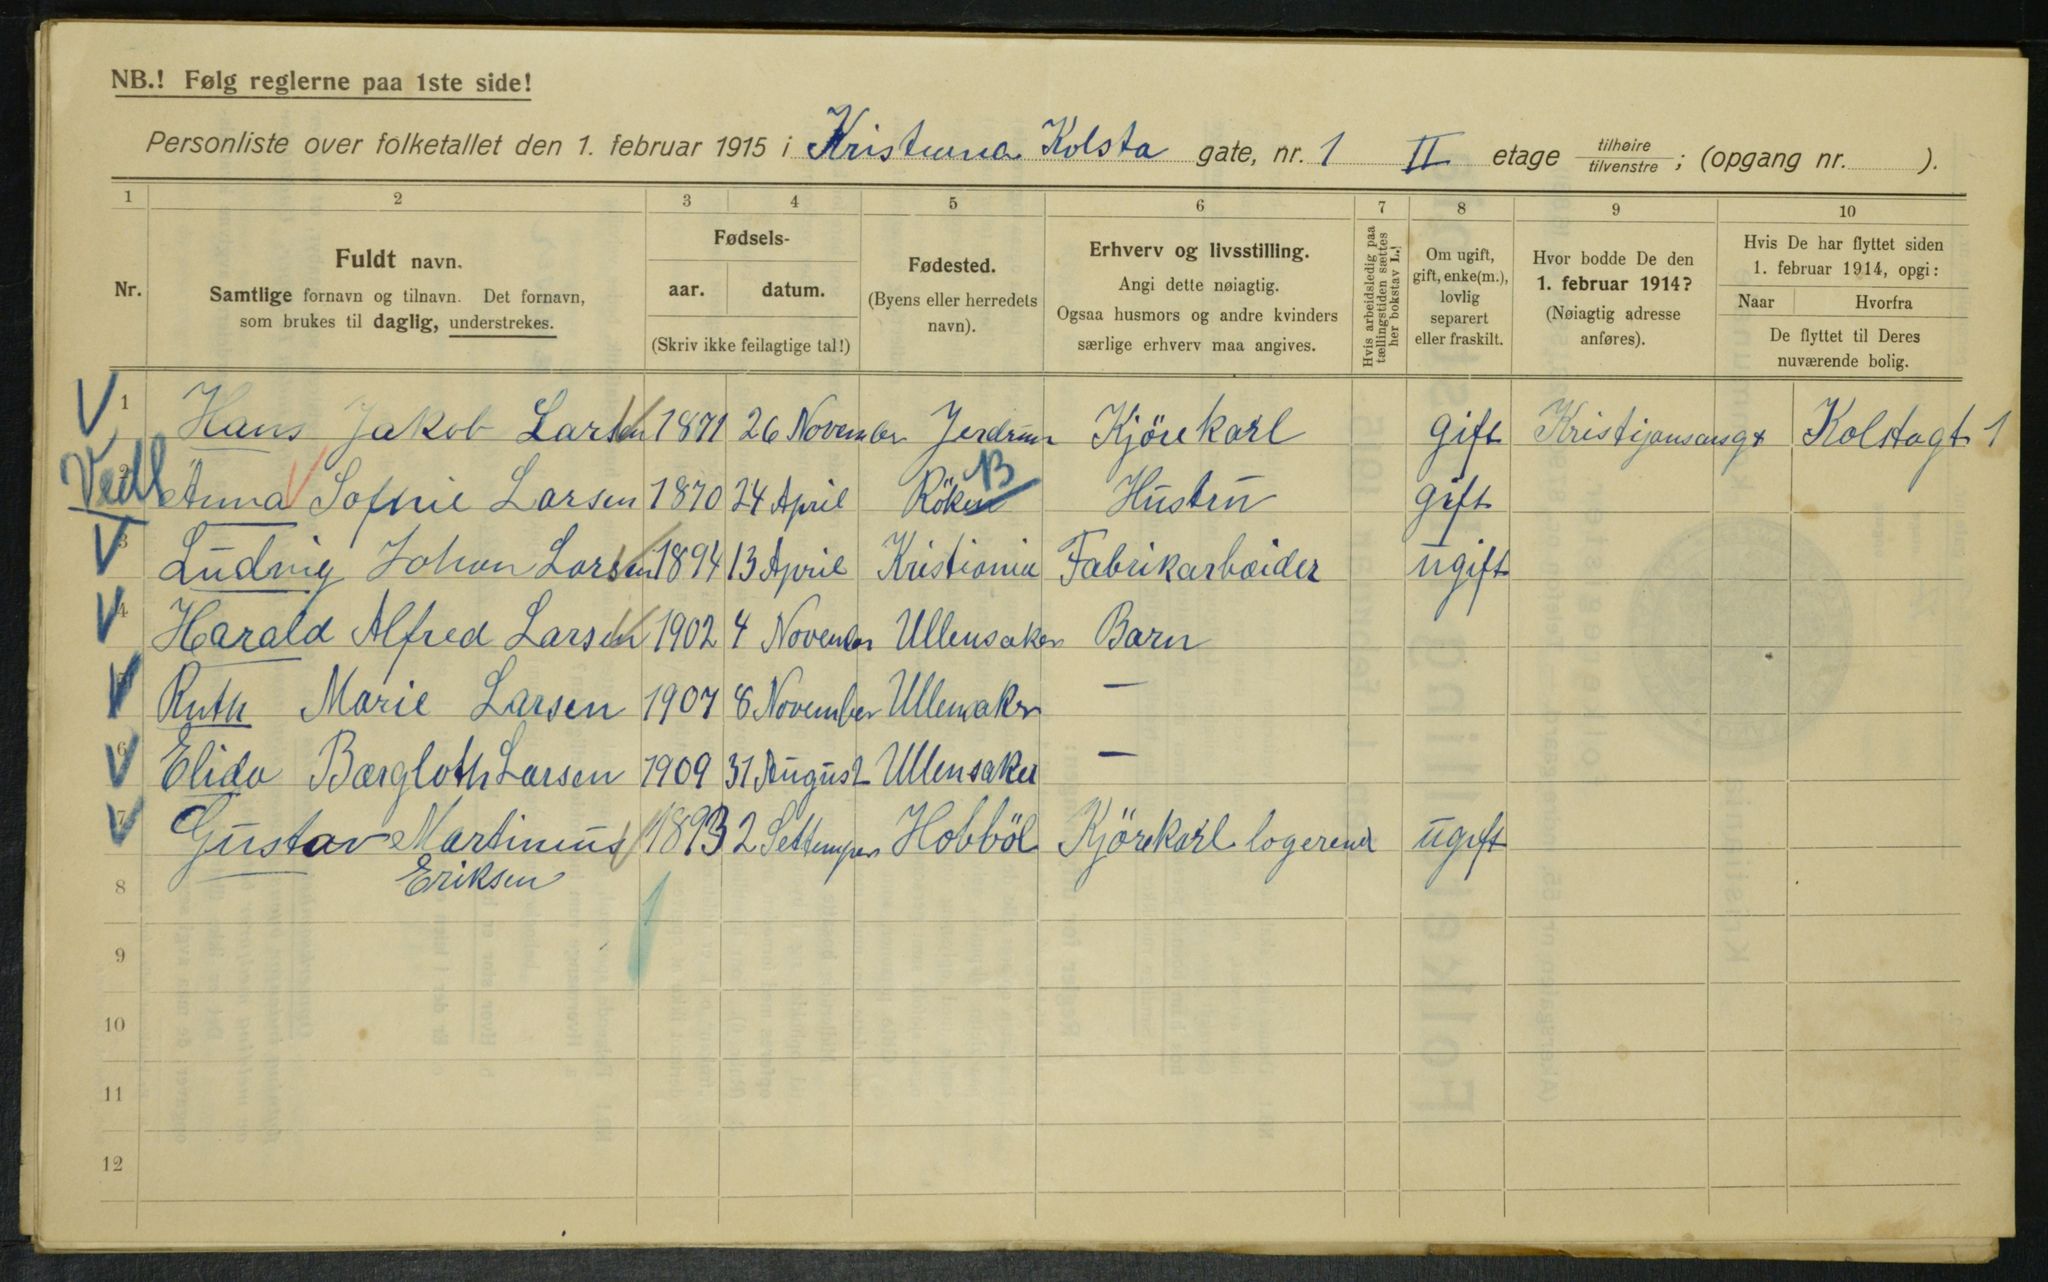 NB.! Følg reglerne paa 1ste side!
Personliste over folketallet den 1. februar 1915 i Kristiania Kolsta gate, nr. 1 II etage tilhøire/tilvenstre; (opgang nr. ).
1 2 3 4 5 6 7 8 9 10
Nr.
Fuldt navn.
Samtlige fornavn og tilnavn. Det fornavn,
som brukes til daglig, understrekes.
Fødsels-
aar. datum.
(Skriv ikke feilagtige tal!)
Fødested.
(Byens eller herredets
navn).
Erhverv og livsstilling.
Angi dette nøiagtig.
Ogsaa husmors og andre kvinders
særlige erhverv maa angives.
Hvis arbeidsledig paa
tællingstiden sættes
her bokstav L.!
Om ugift,
gift, enke(m.),
lovlig
separert
eller fraskilt.
Hvor bodde De den
1. februar 1914?
(Nøiagtig adresse
anføres).
Hvis De har flyttet siden
1. februar 1914, opgi:
Naar Hvorfra
De flyttet til Deres
nuværende bolig.
1 Hans Jakob Larsen 1871 26 November Jerdrum Kjörekarl gift Kolstagt 1
Vedl 2 Anna Sofnie Larsen 1870 24 April Röken B Hustru gift
3 Ludvig Johan Larsen 1894 13 April Kristiania Fabrikarbeider ugift
4 Harald Alfred Larsen 1902 4 November Ullensaker Barn
5 Ruth Marie Larsen 1907 8 November Ullensaker —
6 Elida Bærgloth Larsen 1909 31 August Ullensaker —
7 Gustav Martinius 1893 2 Settemper Hobböl Kjörekarl logerend ugift
Eriksen
8
9
10
11
12